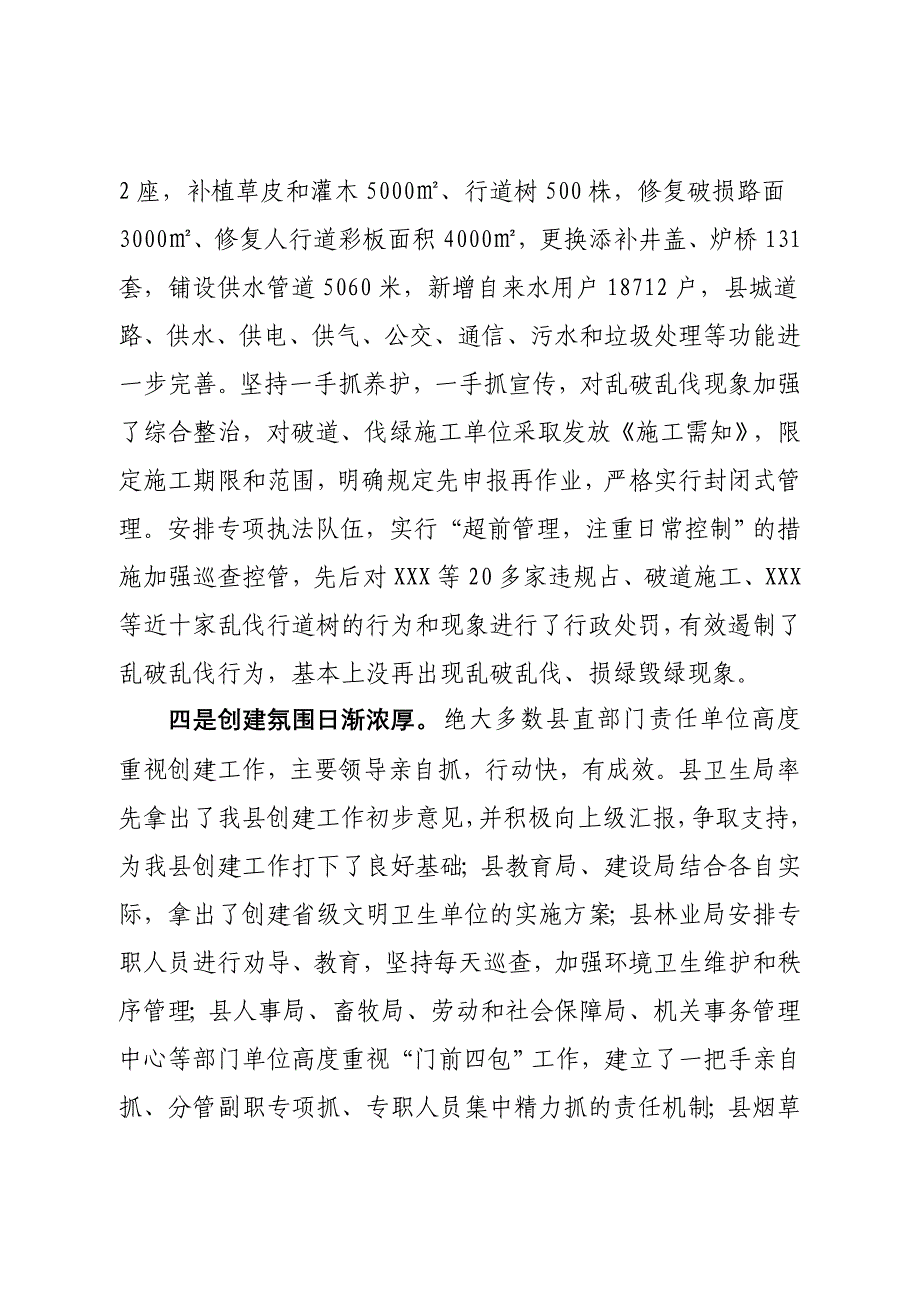 2 座，补植草皮和灌木 5000㎡、行道树 500 株，修复破损路面
3000㎡、修复人行道彩板面积 4000㎡，更换添补井盖、炉桥 131
套，铺设供水管道 5060 米，新增自来水用户 18712 户，县城道
路、供水、供电、供气、公交、通信、污水和垃圾处理等功能进
一步完善。坚持一手抓养护，一手抓宣传，对乱破乱伐现象加强
了综合整治，对破道、伐绿施工单位采取发放《施工需知》，限
定施工期限和范围，明确规定先申报再作业，严格实行封闭式管
理。安排专项执法队伍，实行“超前管理，注重日常控制”的措
施加强巡查控管，先后对 XXX 等 20 多家违规占、破道施工、XXX
等近十家乱伐行道树的行为和现象进行了行政处罚，有效遏制了
乱破乱伐行为，基本上没再出现乱破乱伐、损绿毁绿现象。
四是创建氛围日渐浓厚。绝大多数县直部门责任单位高度
重视创建工作，主要领导亲自抓，行动快，有成效。县卫生局率
先拿出了我县创建工作初步意见，并积极向上级汇报，争取支持，
为我县创建工作打下了良好基础；县教育局、建设局结合各自实
际，拿出了创建省级文明卫生单位的实施方案；县林业局安排专
职人员进行劝导、教育，坚持每天巡查，加强环境卫生维护和秩
序管理；县人事局、畜牧局、劳动和社会保障局、机关事务管理
中心等部门单位高度重视“门前四包”工作，建立了一把手亲自
抓、分管副职专项抓、专职人员集中精力抓的责任机制；县烟草